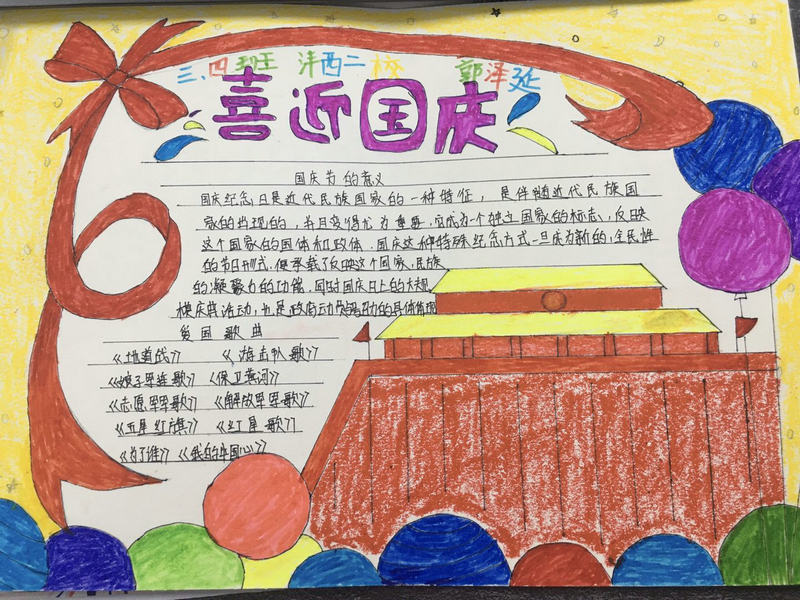 三、四班 沣西二校 郭泽延
喜近国庆
国庆节的意义
国庆纪念日是近代民族国家的一种特征，是伴随近代民族国
家的出现的，并且变得尤为重要，它成为一个独立国家的标志，反映
这个国家的国体和政体．国庆这种特殊纪念方式一旦成为新的，全民性
的节日形式，便承载了反映这个国家、民族
的凝聚力的功能，同时国庆日上的大规
模庆典活动，也是政府动员号召力的具体体现
爱国歌曲
《地道战》 《游击队歌》
《娘子军连歌》 《保卫黄河》
《志愿军军歌》 《解放军军歌》
《五星红旗》 《红星歌》
《为了谁》 《我的中国心》